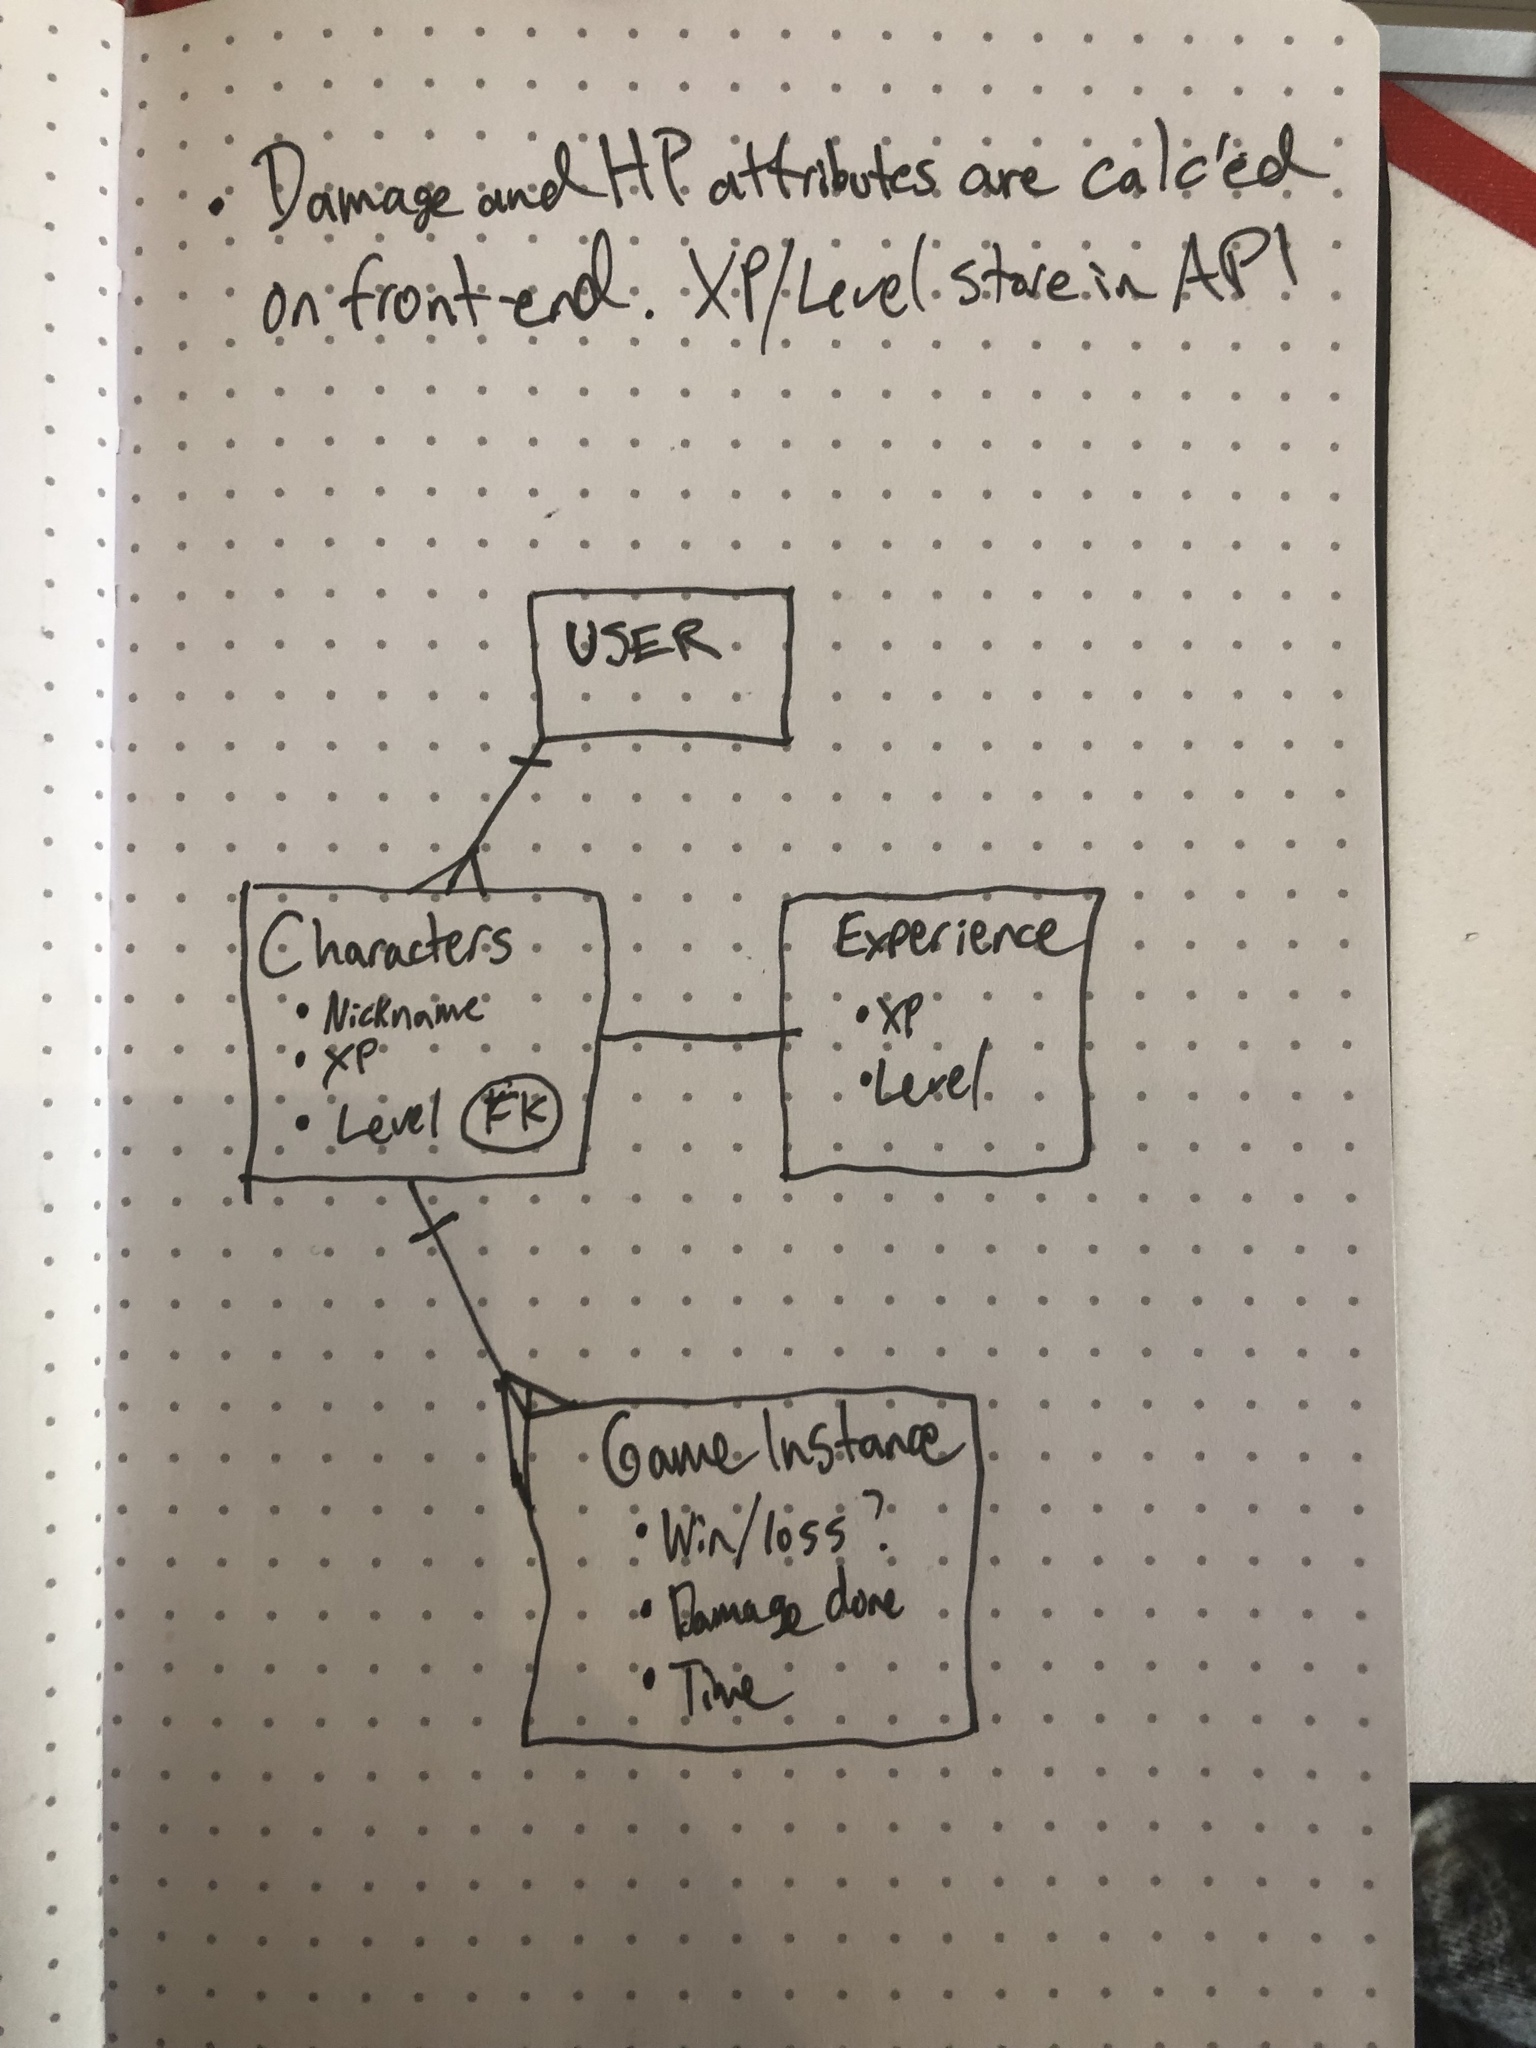 • Damage and HP attributes are calc'ed
on front-end. XP/Level store in API
USER
Characters
• Nickname
• XP
• Level FK
Experience
• XP
• Level
Game Instance
• Win/loss?
• Damage done
• Time